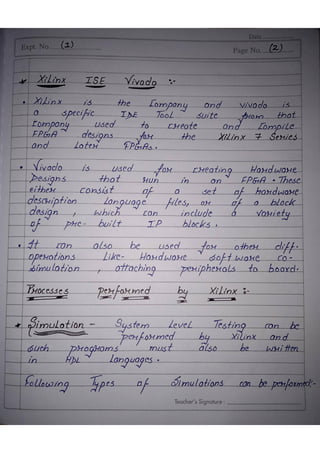 Date
Expt. No. (1)
Page No. (2)
* Xilinx ISE Vivado :-
• Xilinx is the Company and vivado is
a specific IDE Tool suite from that
Company used to create and Compile
FPGA designs for the XILINX 7 Series
and Later FPGAs.
• Vivado is used for creating Hardware
Designs that run in an FPGA. These
either consist of a set of hardware
description language files, or of a block
design, which can include a variety
of pre-built IP blocks.
• It can also be used for other diff.
operations Like- Hardware Software co-
simulation, attaching peripherals to board.
Processes performed by Xilinx :-
* Simulation - System Level Testing can be
performed by Xilinx and
such programs must also be written
in HDL languages.
Following Types of Simulations can be performed:-
Teacher's Signature :